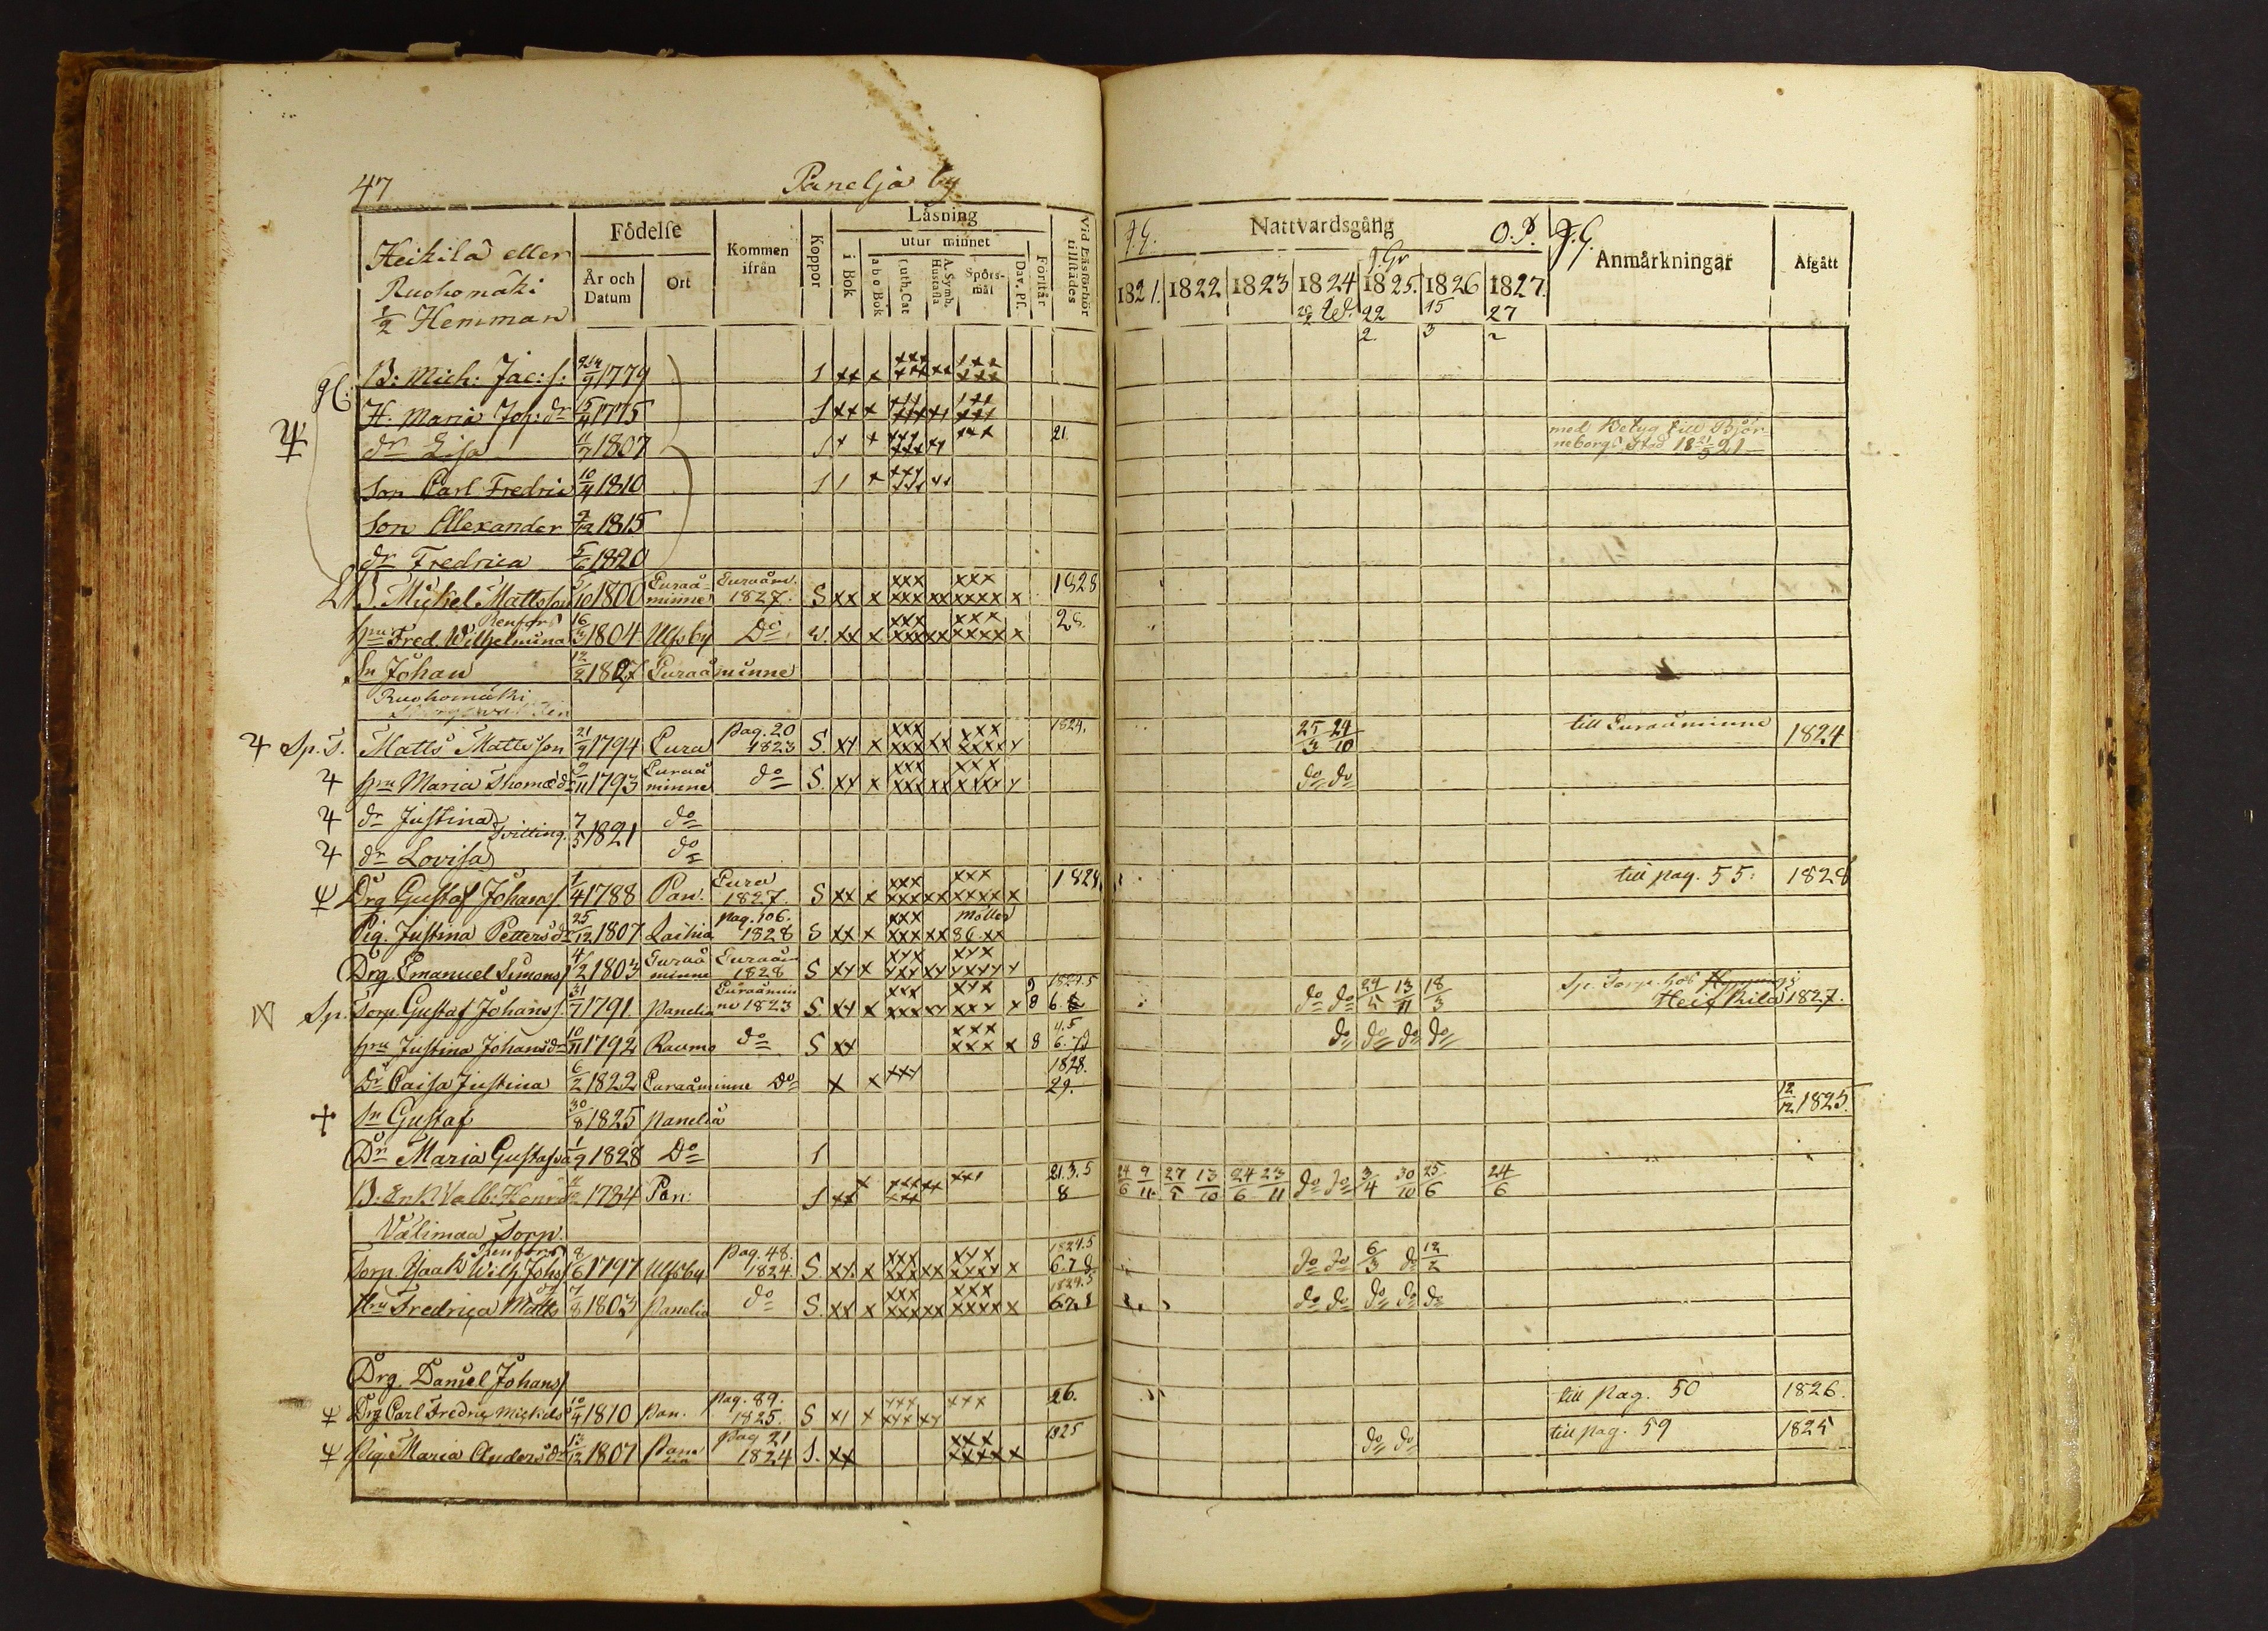 47
Panelja by
Heikilä eller
Ruohomäki
1/2 Hemman
Födelse
År och Datum
Ort
Kommen ifrån
Koppor
Läsning
i Bok
utur minnet
a b c Bok
Luth. Cat
A. Symb. Hustafla
Spörsmål
Dav. Ps.
Förstår
Vid Läsförhör tillstädes
Nattvardsgång
O.P.
J.G.
Anmärkningar
Afgått
1821. 1822 1823 1824 1825. 1826 1827.
22 15 27
2. 3 2
B: Mich: Jac: s: 1779 S
H. Maria Joh: dr 1775 S
dr Lisa 11/7 1807 21. med Betyg till Björneborgs Stad 18 21/5 21
Son Carl Fredric 10/4 1810
Son Allexander 1815
dr Fredrica 1820
B. Mickel Mattsson 5/10 1800 Euraåminne Euraåm. 1827. S xx x xxx xxx xx xxx xxxx x 1828
Renfors
hru Fred. Wilhelmina 16/3 1804 Ulfsby Do v. xx x xxx xxx xx xxx xxxx x 28
Sn Johan 12/2 1827 Euraåminne
Ruohomäki
Sp. T. Matts Mattsson 21/9 1794 Eura pag. 20 1823 S. xx x xxx xxx xx xxx xxxx x 1824. 25/3 24/10 till Euraåminne 1824
hru Maria Thomædr 9/11 1793 Euraåminne do S. xx x xxx xxx xx xxx xxxx x do do
dr Justina Tvilling. 7/5 1821 do
dr Lovisa do
Drg Gustaf Johans s 1/4 1788 Pan. Eura 1827. S xx x xxx xxx xx xxx xxxx x 1828 till pag. 55: 1828
Pig. Justina Pettersdr 25/12 1807 Laihia pag. 106. 1828 S xx x xxx xxx xx
Drg. Emanuel Simons s 4/2 1803 Euraåminne Euraåm 1828 S xx x xxx xxx xx xxx xxxx x
Sp. Torp. Gustaf Johans s. 31/7 1791. Panelia Euraåminne 1823 S. xx x xxx xxx xx xxx xxx x 9 8 1824.5 do do 24/5 13/11 18/3 Sp. Torp. hos Heickilä 1827.
hru Justina Johansdr 10/11 1792 Raumo do S xx xxx xxx x 8 4.5 6.7.8 do do do do
Dr Caisa Justina 6/2 1822 Euraåminne Do x x xxx 1828. 29.
Sn Gustaf 30/8 1825 Panelia 12/12 1825.
Dr Maria Gustafva 1/9 1828 Do
B: Enk. Valb: Henrd 1784 Pan: 21.3.5 8 24/6 9/11 27/5 13/10 24/6 23/11 do do 3/4 30/10 25/6 24/6
Välimaa Torp.
Renfors
Torp. Isaak Wilh. Johs s 8/6 1797 Ulfsby pag. 48. 1824. S. xx. x xxx xxx xx xxx xxxx x 1824.5 6.7.8. do do 6/3 do 12/2
Hru Fredrica Matts dr 7/8 1803 Panelia do S. xx x xxx xxx xx xxx xxxx x 1824.5 6.7.8 do do do do do
Drg. Daniel Johans s
Drg Carl Fredric Mickels s 10/4 1810 Pan. pag. 89. 1825. S 26. till pag. 50 1826.
Pig. Maria Andersdr 13/12 1807 Panelia pag 21 1824 S. xx xxx xxxxx 1825 do do till pag. 59 1825